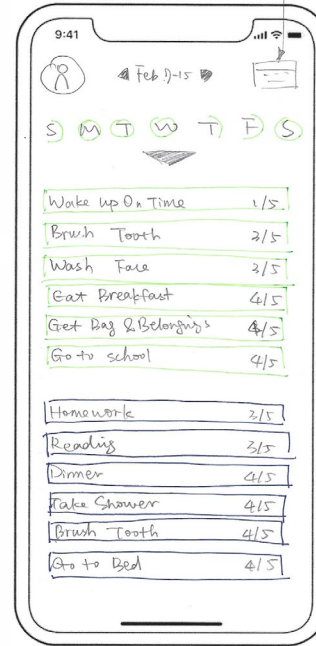 9:41
Feb 9-15
S M T W T F S
Wake up On Time 1/5
Brush Tooth 2/5
Wash Face 3/5
Eat Breakfast 4/5
Get Bag & Belongings 4/5
Go to school 4/5
Homework 3/5
Reading 3/5
Dinner 4/5
Take Shower 4/5
Brush Tooth 4/5
Go to Bed 4/5